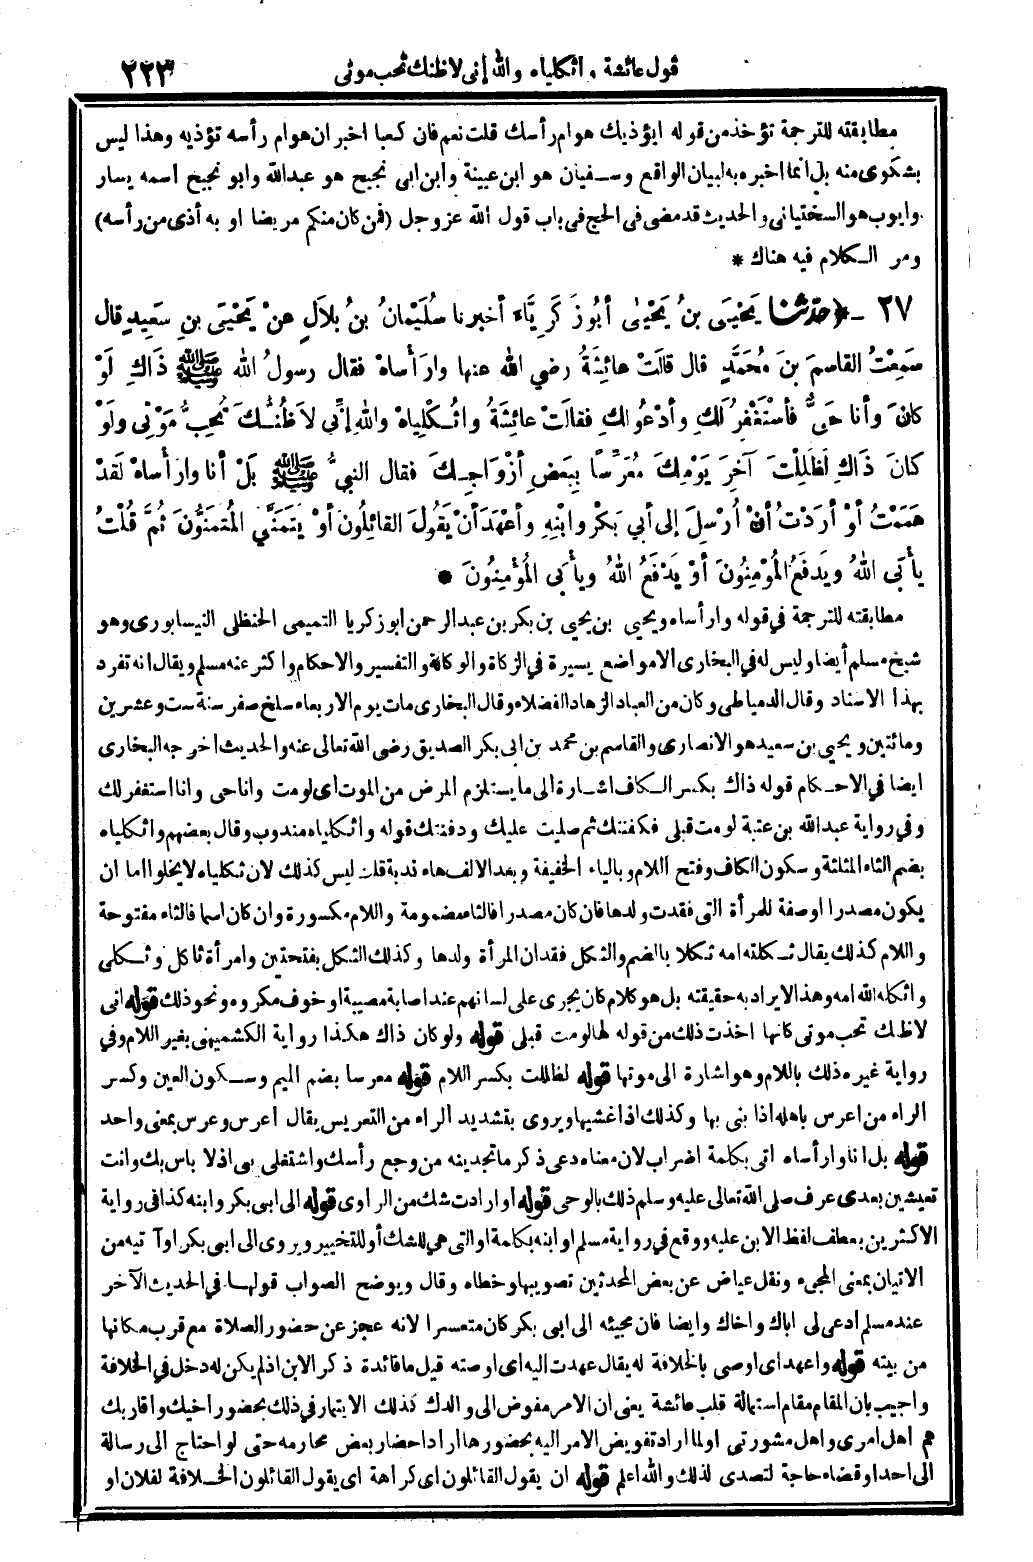 قول عائشة واثكلياه والله إنى لاظنك تحب موتى
٢٢٣
مطابقته للترجمة تؤخذ من قوله ايؤذيك هوام رأسك قلت نعم فان كعبا اخبر ان هوام رأسه تؤذيه وهذا ليس
بشكوى منه بل انما اخبره به لبيان الواقع وسفيان هو ابن عيينة وابن ابى نجيح هو عبدالله وابو نجيح اسمه يسار
وايوب هو السختيانى والحديث قد مضى فى الحج فى باب قول الله عز وجل (فمن كان منكم مريضا او به أذى من رأسه)
ومر الكلام فيه هناك *
٢٧ - ﴿حدثنا يَحْيَى بنُ يَحْيٰى أبُو زَكَرِيَّاءَ أخبرنا سُلَيْمانُ بنُ بِلاَلٍ عنْ يَحْيَى بنِ سَعِيدٍ قال
سَمِعْتُ القاسِمَ بنَ مُحَمَّدٍ قال قالَتْ عائِشَةُ رضي الله عنها وارَأْساهْ فقال رسولُ الله ﷺ ذَاكِ لَوْ
كانَ وأنا حَيٌّ فأسْتَغْفِرُ لَكِ وأدْعُو لكِ فقالَتْ عائِشَةُ واثُكْلِياهْ واللهِ إنِّي لأظُنُّكَ تُحِبُّ مَوْتِي ولَوْ
كانَ ذَاكَ لَظَلِلْتَ آخِرَ يَوْمِكَ مُعَرِّسًا بِبَعْضِ أزْوَاجِكَ فقال النبيُّ ﷺ بَلْ أنا وارَأْساهْ لَقَدْ
هَمَمْتُ أوْ أرَدْتُ أنْ أُرْسِلَ إلى أبي بَكْرٍ وابْنِهِ وأعْهَدَ أنْ يَقُولَ القائِلُونَ أوْ يَتَمَنَّى المُتَمَنُّونَ ثُمَّ قُلْتُ
يأْبَى اللهُ ويَدْفَعُ المُؤْمِنُونَ أوْ يَدْفَعُ اللهُ ويأْبَى المُؤْمِنُونَ *
مطابقته للترجمة في قوله وارأساه ويحيى بن يحيى بن بكر بن عبد الرحمن ابو زكريا التميمى الحنظلى النيسابورى وهو
شيخ مسلم أيضا وليس له في البخارى الا مواضع يسيرة في الزكاة والوكالة والتفسير والاحكام واكثر عنه مسلم ويقال انه تفرد
بهذا الاسناد وقال الدمياطى وكان من العباد الزهاد الفضلاء وقال البخارى مات يوم الاربعاء سلخ صفر سنة ست وعشرين
ومائتين ويحيى بن سعيد هو الانصارى والقاسم بن محمد بن ابى بكر الصديق رضى الله تعالى عنه والحديث اخرجه البخارى
ايضا في الاحكام قوله ذاك بكسر الكاف اشارة الى ما يستلزم المرض من الموت اى لو مت وانا حى وانا استغفر لك
وفي رواية عبدالله بن عتبة لو مت قبلى فكفنتك ثم صليت عليك ودفنتك قوله واثكلياه مندوب وقال بعضهم واثكلياه
بضم الثاء المثلثة وسكون الكاف وفتح اللام وبالياء الخفيفة وبعد الالف هاء ندبة قلت ليس كذلك لان ثكلياه لا يخلوا اما ان
يكون مصدرا او صفة للمرأة التى فقدت ولدها فان كان مصدرا فالثاء مضمومة واللام مكسورة وان كان اسما فالثاء مفتوحة
واللام كذلك يقال ثكلته امه ثكلا بالضم والثكل فقدان المرأة ولدها وكذلك الثكل بفتحتين وامرأة ثاكل وثكلى
واثكله الله امه وهذا لا يراد به حقيقته بل هو كلام كان يجرى على لسانهم عند اصابة مصيبة او خوف مكروه ونحو ذلك قوله انى
لاظنك تحب موتى كانها اخذت ذلك من قوله لها لو مت قبلى قوله ولو كان ذاك هكذا رواية الكشميهنى بغير اللام وفي
رواية غيره ذلك باللام وهو اشارة الى موتها قوله لظللت بكسر اللام قوله معرسا بضم الميم وسكون العين وكسر
الراء من اعرس باهله اذا بنى بها وكذلك اذا غشيها ويروى بتشديد الراء من التعريس يقال أعرس وعرس بمعنى واحد
قوله بل انا وارأساه اتى بكلمة اضراب لان معناه دعى ذكر ما تجدينه من وجع رأسك واشتغلى بى اذ لا باس بك وانت
تعيشين بعدى عرف صلى الله تعالى عليه وسلم ذلك بالوحى قوله أو اردت شك من الراوى قوله الى ابى بكر وابنه كذا فى رواية
الاكثرين بعطف لفظ الابن عليه ووقع في رواية مسلم او ابنه بكلمة او التى هي للشك أو للتخيير ويروى الى ابى بكر او آتيه من
الاتيان بمعنى المجىء ونقل عياض عن بعض المحدثين تصويبها وخطاه وقال ويوضح الصواب قولها في الحديث الآخر
عند مسلم ادعى لى اباك واخاك وايضا فان مجيئه الى ابى بكر كان متعسرا لانه عجز عن حضور الصلاة مع قرب مكانها
من بيته قوله واعهد اى اوصى بالخلافة له يقال عهدت اليه اى اوصته قيل ما فائدة ذكر الابن اذ لم يكن له دخل في الخلافة
واجيب بان المقام مقام استمالة قلب عائشة يعنى ان الامر مفوض الى والدك كذلك الايتمار في ذلك بحضور اخيك واقاربك
هم اهل امرى واهل مشورتى او لما اراد تفويض الامر اليه بحضورها اراد احضار بعض محارمه حتى لو احتاج الى رسالة
الى احد او قضاء حاجة لتصدى لذلك والله اعلم قوله ان يقول القائلون اى كراهة اى يقول القائلون الخلافة لفلان او